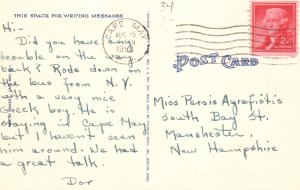 34
THIS SPACE FOR WRITING MESSAGES
CAPE MAY
AUG 15
1955
POST CARD
2¢
Hi -
Did you have any
trouble on the way
back? Rode down in
the bus from N.Y.
with a very nice
Greek boy. He is
staying in Cape May
but I haven't seen
him around. We had
a great talk.
Dor
Miss Persis Agrafiotis
South Bay St.
Manchester,
New Hampshire